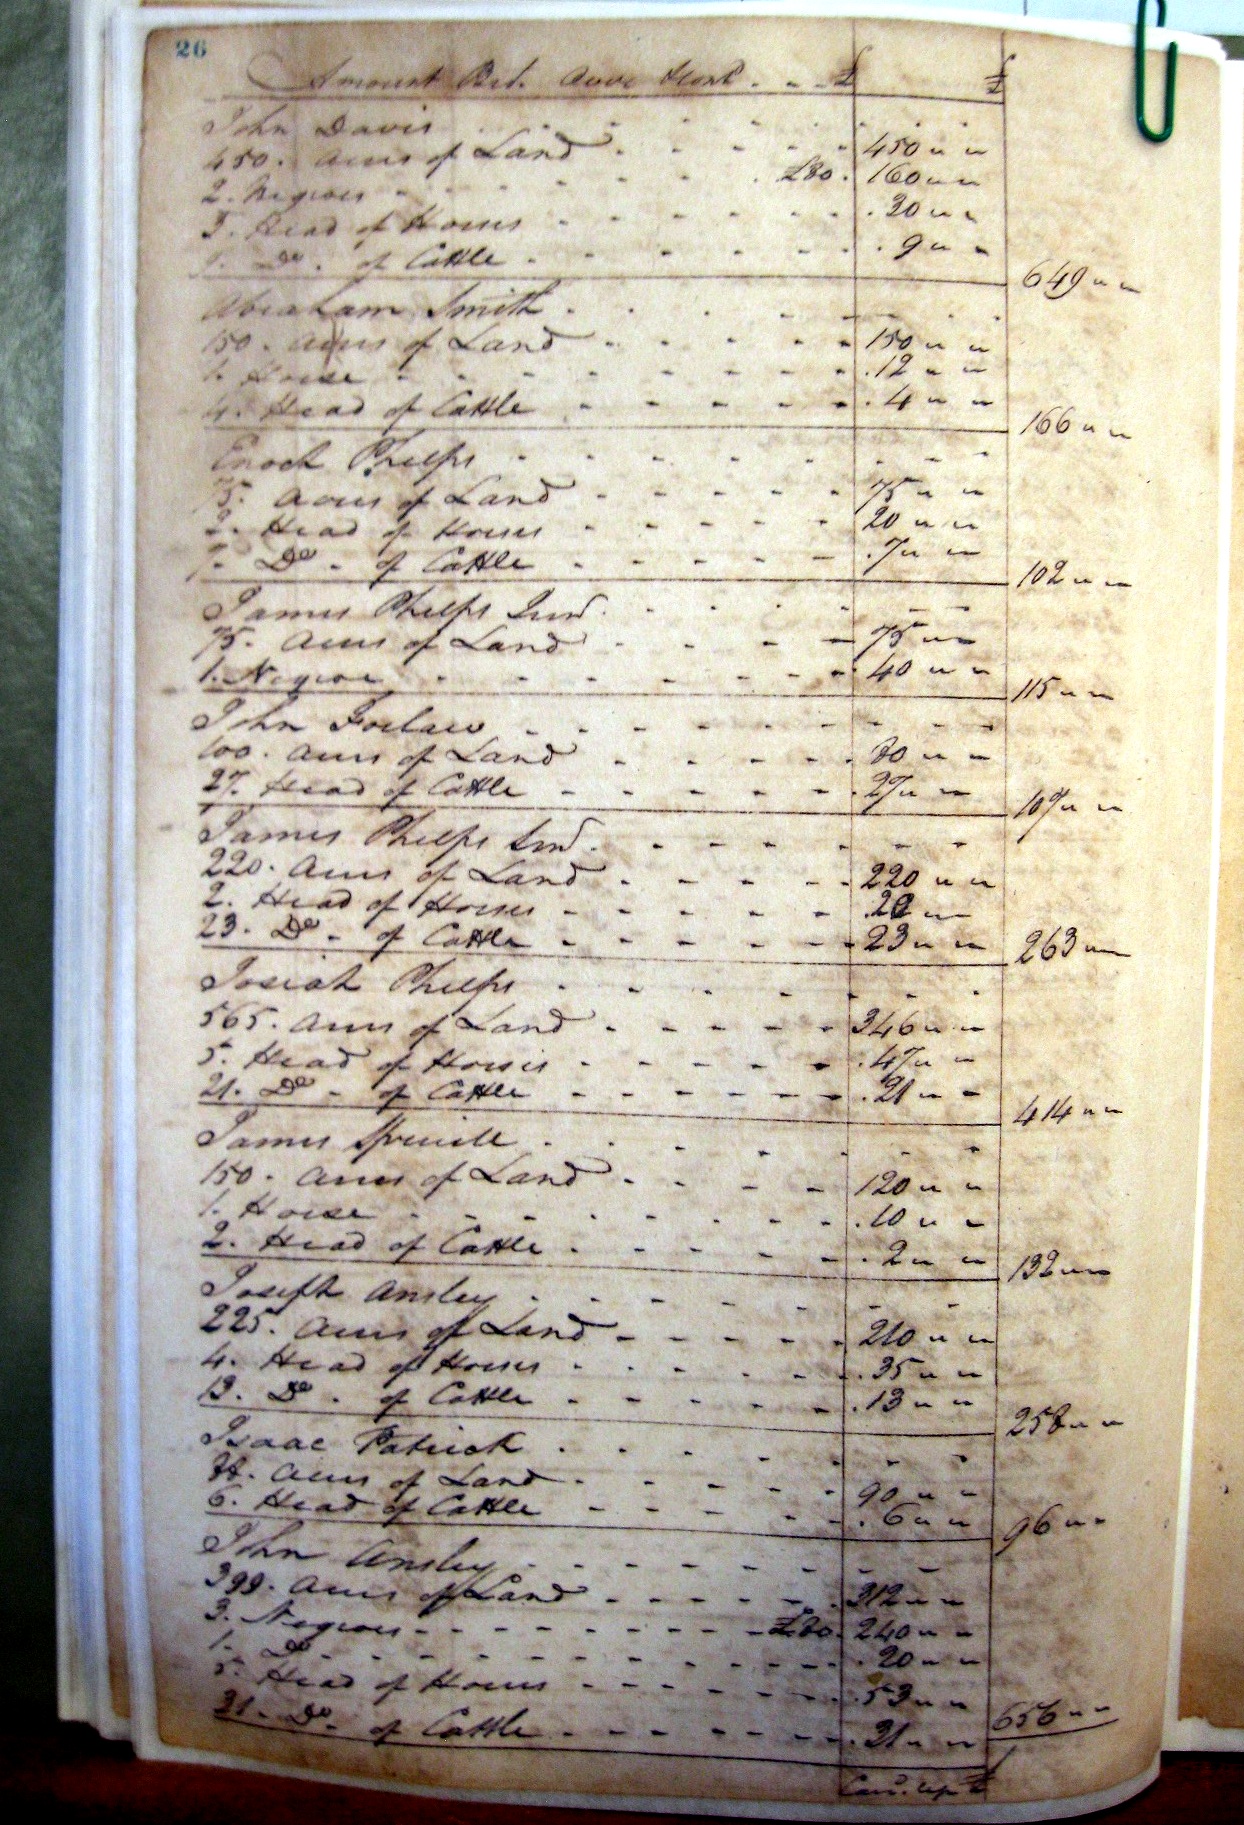 26
Amount Brt. Over £ £
John Davis
450. Acres of Land 450 " "
2. Negroes £80. 160 " "
3. Head of Horses 30 " "
Do. of Cattle 9 " "
649 " "
Abraham Smith
150. Acres of Land 150 " "
1. Horse 12 " "
4. Head of Cattle 4 " "
166 " "
Enoch Phelps
75. Acres of Land 75 " "
2. Head of Horses 20 " "
7. Do. of Cattle 7 " "
102 " "
James Phelps Junr.
75. Acres of Land 75 " "
1. Negroe 40 " "
115 " "
John
100. Acres of Land 80 " "
27. Head of Cattle 27 " "
107 " "
James Phelps Senr.
220. Acres of Land 220 " "
2. Head of Horses 20 "
23. Do. of Cattle 23 " "
263 " "
Josiah Phelps
565. Acres of Land 346 " "
5. Head of Horses 47 " "
21. Do. of Cattle 21 " "
414 " "
James Spruill
150. Acres of Land 120 " "
1. Horse 10 " "
2. Head of Cattle 2 " "
132 " "
Joseph Ansley
225. Acres of Land 210 " "
4. Head of Horses 35 " "
13. Do. of Cattle 13 " "
258 " "
Isaac Patrick
Acres of Land 90 " "
6. Head of Cattle 6 " "
96 " "
John Ansley
399. Acres of Land 312 " "
3. Negroes £80. 240 " "
1. Do. 20 " "
5. Head of Horses 53 " "
31. Do. of Cattle 31 " "
656 " "
Card. up £